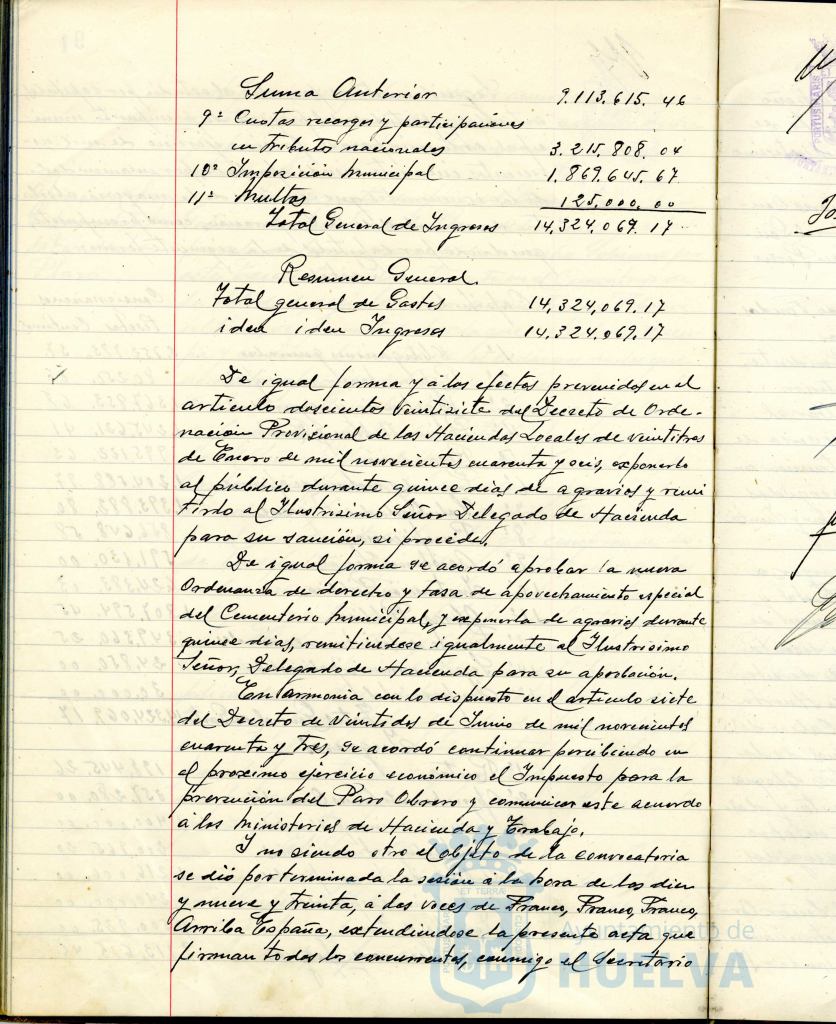 Suma Anterior 9.113.615. 46
9º Cuotas recargos y participaciones
en tributos nacionales 3.215.808. 04
10º Imposición municipal 1.869.645. 67
11º Multas 125.000. 00
Total General de Ingresos 14,324,069. 17
Resumen General.
Total general de Gastos 14,324,069.17
iden iden Ingresos 14.324.069.17
De igual forma y á los efectos prevenidos en el
articulo doscientos veintisiete del Decreto de Orde-
nación Provisional de las Haciendas Locales de veintitres
de Enero de mil novecientos cuarenta y seis, exponerlo
al público durante quince dias de agravios y remi
tirlo al Ilustrisimo Señor Delegado de Hacienda
para su sanción, si procede.
De igual forma se acordó aprobar la nueva
Ordenanza de derecho y tasa de apovechamiento especial
del Cementerio Municipal, y exponerla de agravios durante
quince dias, remitiendose igualmente al Ilustrisimo
Señor, Delegado de Hacienda para su aprobación.
En armonia con lo dispuesto en el articulo siete
del Decreto de veintidos de Junio de mil novecientos
cuarenta y tres, se acordó continuar percibiendo en
el proximo ejercicio económico el Impuesto para la
prevención del Paro Obrero y comunicar este acuerdo
á los Ministerios de Hacienda y Trabajo.
Y no siendo otro el objeto de la convocatoria
se dió por terminada la sesión á la hora de las diez
y nueve y treinta, á las voces de Franco, Franco, Franco,
Arriba España, extendiendose la presente acta que
firman todos los concurrentes, conmigo el Secretario
Ayuntamiento de
HUELVA